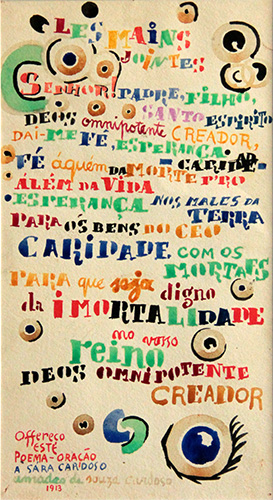 LES MAINS
JOINTES
SENHOR! PADRE, FILHO,
SANTO ESPIRITO
DEOS omnipotente CREADOR,
DAI-ME FÉ, ESPERANÇA
– CARIDADE –
FÉ áquém DA MORTE PRO
ÁLÉM DA VIDA
ESPERANÇA NOS MALES DA
TERRA
PARA OS BENS DO CEO
CARIDADE COM OS
MORTAES
PARA que seja digno
da IMORTALIDADE
no vosso
reino
DEOS OMNIPOTENTE
CREADOR
Offereço
ESTE
POEMA-ORAÇÃO
A SARA CARDOSO
amadeo de souza cardoso
1913